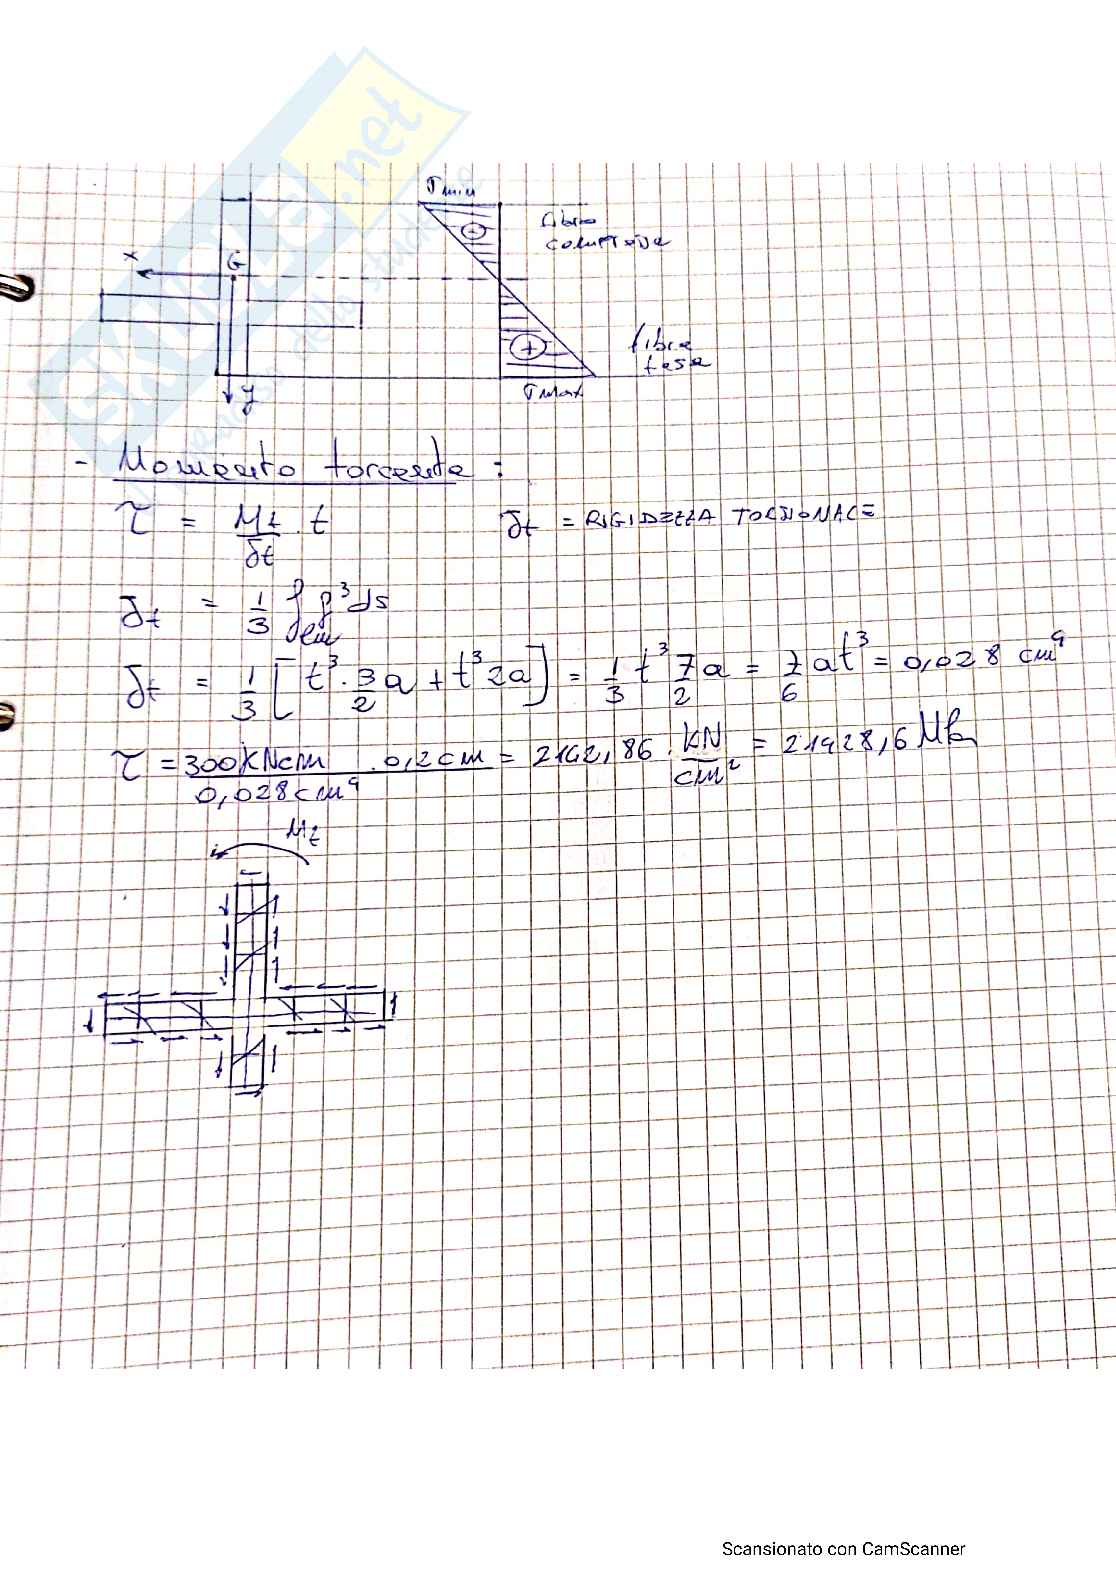 σmin
fibre
compresse
x
G
fibre
tese
y
σmax
- Momento torcente :
τ = Mt/Jt · t   Jt = RIGIDEZZA TORSIONALE
Jt = 1/3 ∫ℓm p³ds
Jt = 1/3 [t³ · 3/2 a + t³ 2a] = 1/3 t³ 7/2 a = 7/6 at³ = 0,028 cm⁴
τ = 300KNcm/0,028cm⁴ · 0,2cm = 2142,86 · KN/cm² = 21428,6 MPa
Mt
SKUOLA.net
Scansionato con CamScanner